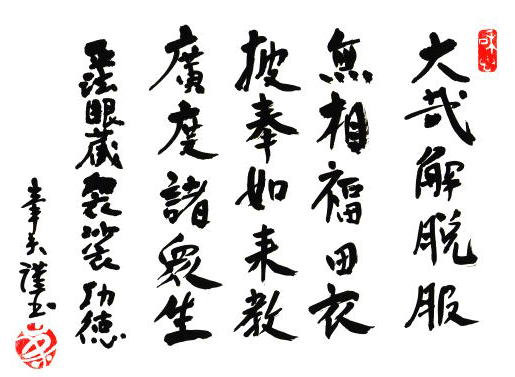 大哉解脱服
無相福田衣
披奉如来教
廣度諸衆生
正法眼蔵袈裟功徳